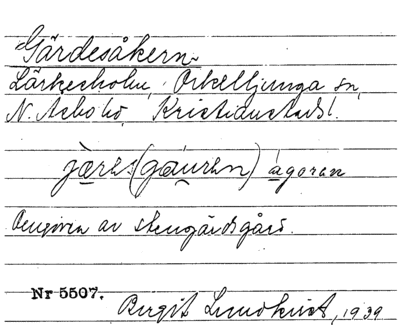 Gärdesåkern
Lärkesholm, Örkelljunga sn,
N. Åsbo hd, Kristianstads l.
jæres (gäuren) ágoren
Omgiven av stengärdsgård.
Nr 5507.
Birgit Lundkvist, 1939